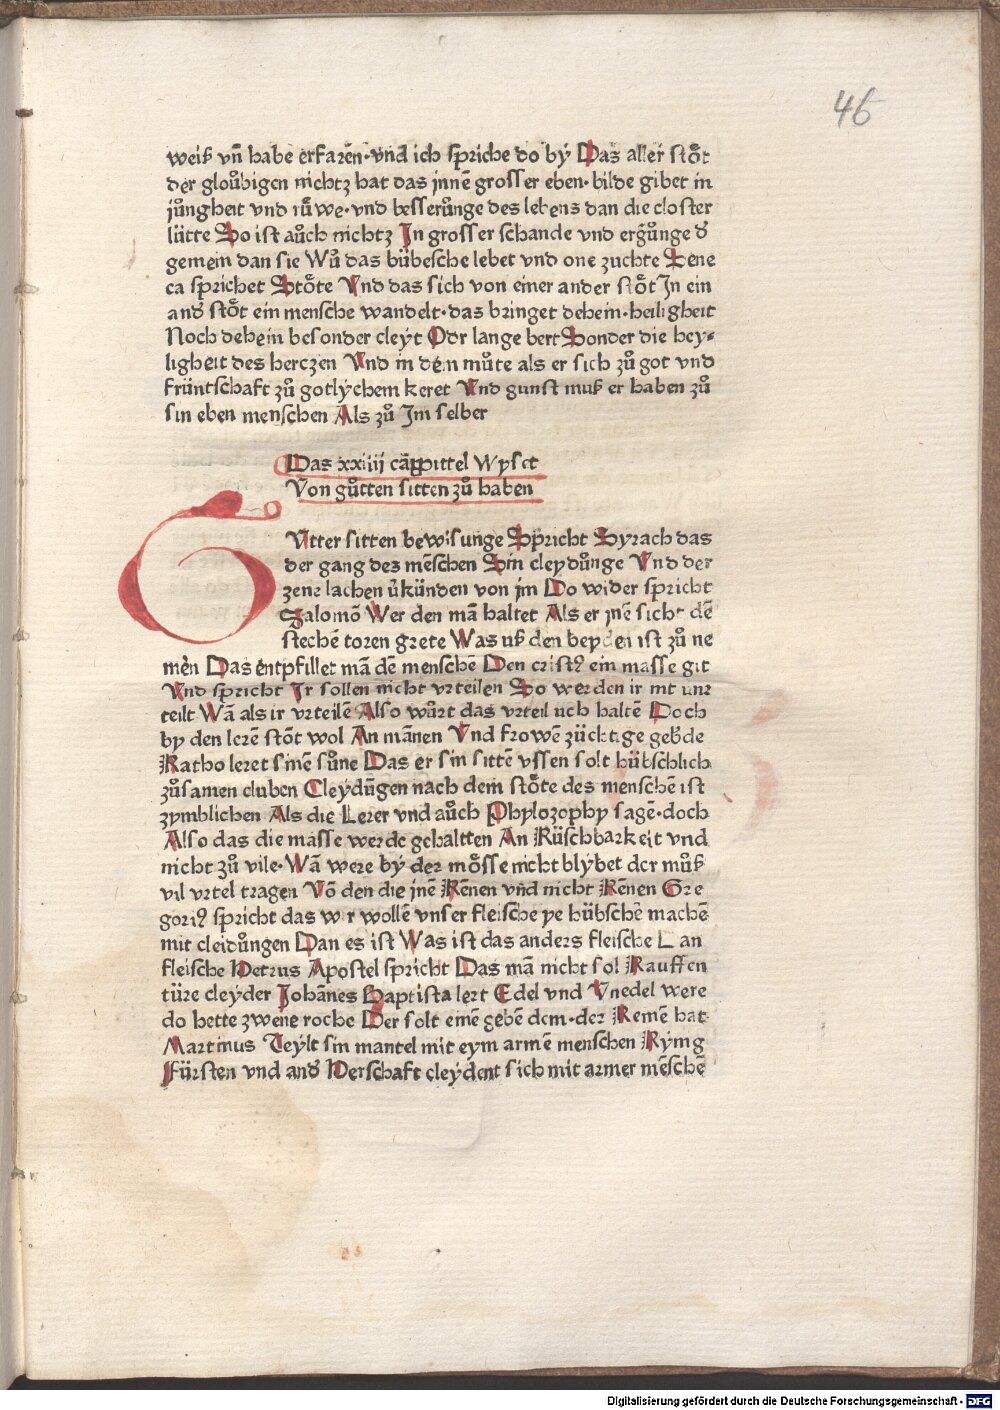 46
weiß vñ habe erfarēn·vnd ich spriche do bÿ Das aller stôt
der gloůbigen nichtz hat das jnnē grosser eben·bilde gibet in
jůngheit vnd růwe·vnd besserůnge des lebens dan die closter
lütte So ist aůch nichtz In grosser schande vnd ergůnge d̕
gemein dan sie Wů das bübesche lebet vnd one zuchte Sene
ca sprichet Stôte Vnd das sich von einer ander stôt In ein
and̕ stôt ein mensche wandelt·das bringet dehein·heiligheit
Noch dehein besonder cleyt Odr lange bert Sonder die hey-
ligheit des herczen Vnd in dem můte als er sich zů got vnd
früntschaft zů gotlÿchem keret Vnd gunst muß er haben zů
sin eben menschen Als zů Im selber
Das xxiiii cappittel Wyset
Von gůtten sitten zů haben
GVtter sitten bewisunge Spricht Syrach das
der gang dez mēschen Sin cleydůnge Vnd der
zene lachen ůkünden von jm Do wider spricht
Salomō Wer den mā haltet Als er jnē sicht dē
stechē toren grete Was uß den beyden ist zů ne
men Das entpfillet mā dē menschē Den cristꝰ ein masse git
Vnd spricht Ir sollen nicht vrteilen So werden ir nit unr
teilt Wā als ir vrteilē Also wůrt das vrteil uch haltē Doch
by den lerē stôt wol An mānen Vnd frowē züchtige geb̕de
Katho leret sinē sůne Das er sin sittē vssen solt hübschlich
zůsamen cluben Cleydūgen nach dem stôte des menschē ist
zymblichen Als die Lerer vnd aůch Phylozophy sagē·doch
Also das die masse werde gehaltten An Rüschbarkeit vnd
nicht zů vile·Wā were bÿ der môsse nicht blybet der můß
vil vrtel tragen Vō den die jnē Kēnen vñd nicht Kēnen Gre
goriꝰ spricht das wir wollē vnser fleischē ye hübschē machē
mit cleidůngen Dan es ist Was ist das anders fleische Lan
fleische Petrus Apostel spricht Das mā nicht sol Kauffen
türe cleyder Johānes Baptista lert Edel vnd Vnedel were
do hette zwene rocke Der solt einē gebē dem·der Keinē hat
Martinus Teÿlt sin mantel mit eym armē menschen Kÿnig
Fürsten vnd and̕ Herschaft cleydent sich mit armer mēschē
Digitalisierung gefördert durch die Deutsche Forschungsgemeinschaft - DFG